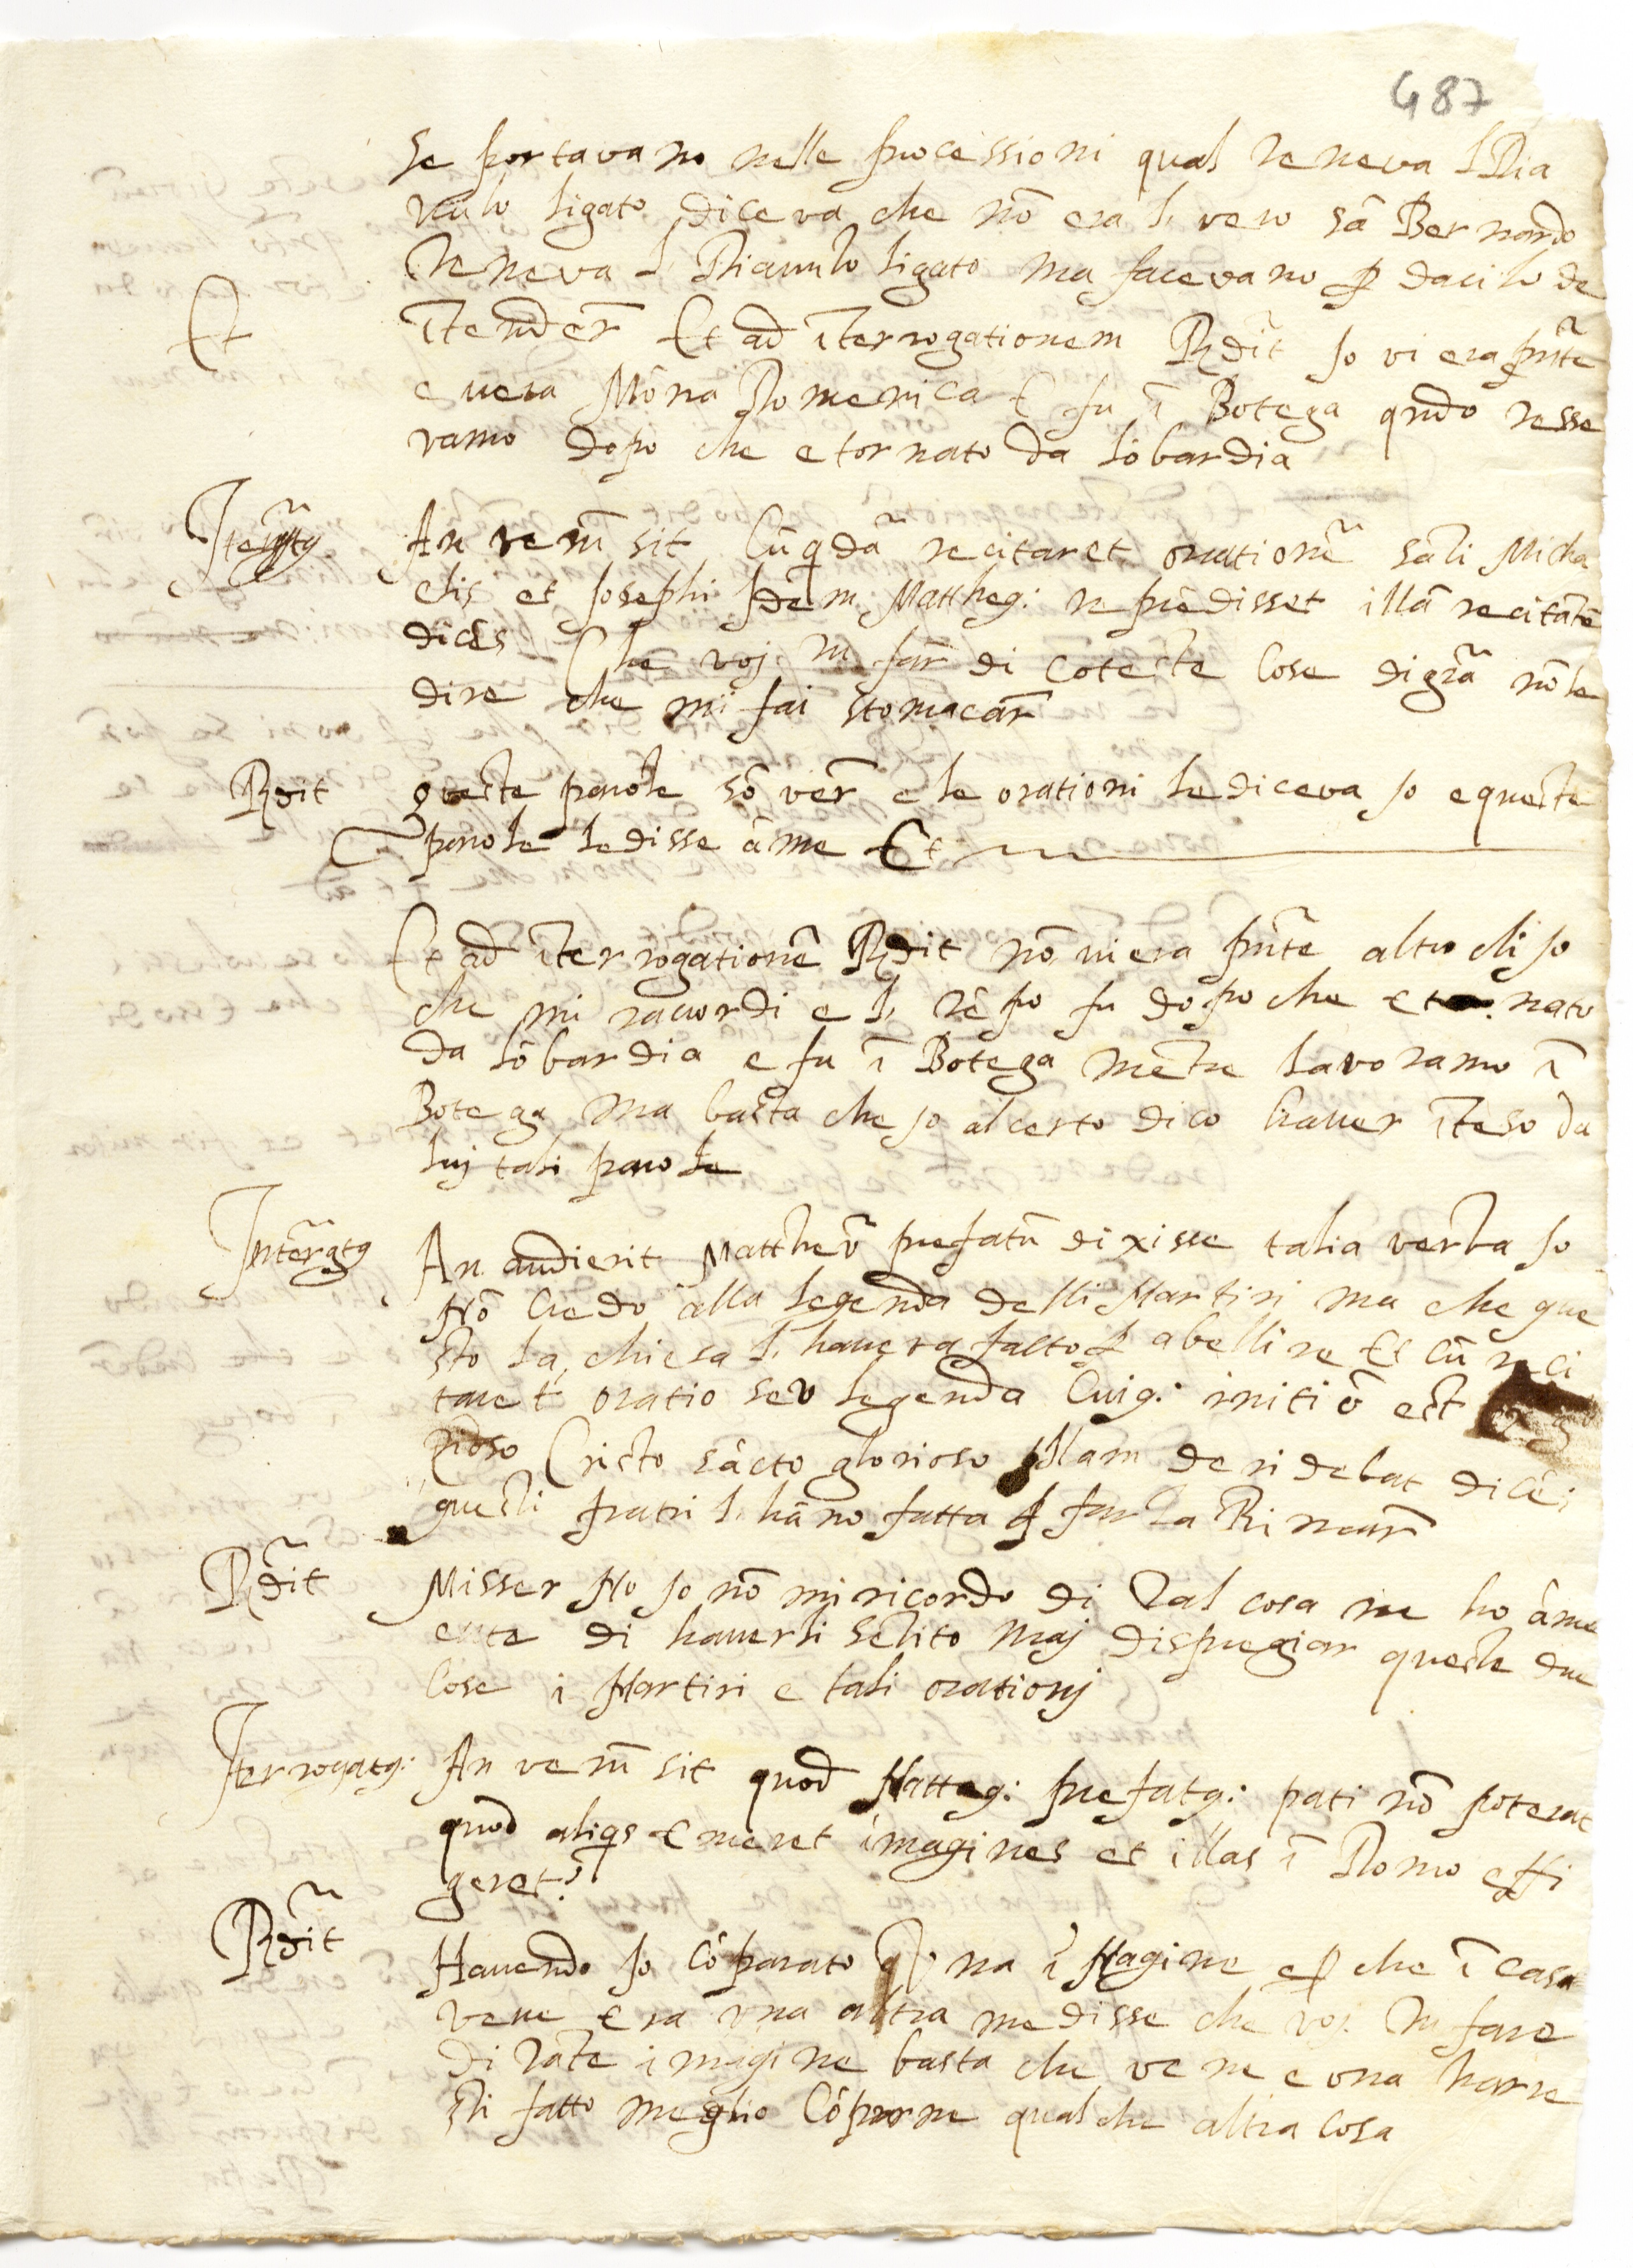 487
se portavano nelle processioni qual teneva l Dia
vulo ligato diceva che nõ era l, vero sã Bernardo
teneva l, Diavulo ligato ma facevano ꝑ dacilo de
Et ĩtender̃ Et ad ĩterrogationem Rẽdit Io vi era p̃nte
e uera Mõna Domenica E fu ĩ Botega qñdo tesse
vamo dopo che e tornato da lõbardia
An verũ sit Cũ quedã recitaret orationẽ sãti Micha
elis et Josephi Idem Mattheq: rep̃edisset illã recitãtẽ
dicẽs Che voj tu far̃ di coteste Cose di gr̃a nõ le
dire che mi fai stomacar̃
Rẽdit queste parole sõ ver̃ e le orationi le diceva Io e queste
parole le disse â me Et
Et ad ĩterrogationẽ Rẽdit nõ ui era p̃nte altro ch Io
che mi racordi e l, tẽpo fu dopo che e tornato
da lõbardia e fu ĩ Botega mẽtre lavoramo ĩ
Botega ma basta che Io al certo dico haver ĩteso da
luj tali parole
Interr̃gtq An audierit Mattheũ prefatũ dixisse talia verba Io
Nõ Credo alla legenda delli Martiri ma che que
sto la chiesa l, haueva fatto ꝑ abellire Et cũ reci
taret̃ oratio seu legenda Cuiq: initiũ est
Cristo sãcto glorioso Illam deridebat dicẽs
questi frati l, hãno fatta ꝑ far la Rimar̃
Rẽdit Misser No Io nõ mj ricordo di Tal cosa ne ho â me
ente di haverli sẽtito maj dispregiar queste due
Cose i Martiri e tali orationj
Iterrogatq: An verũ sit quod Matteq: prefatq: pati nõ poterat
quod aliqs emeret imagines et illas ĩ Domo effi
geret?
Rẽdit Havendo Io Cõparato una ĩ Magine e ꝑ che ĩ casa
vene era una altra me disse che voi tu fare
di tãte imagine basta che ve ne e una harre
sti fatto meglio Cõprarne qualche altra Cosa